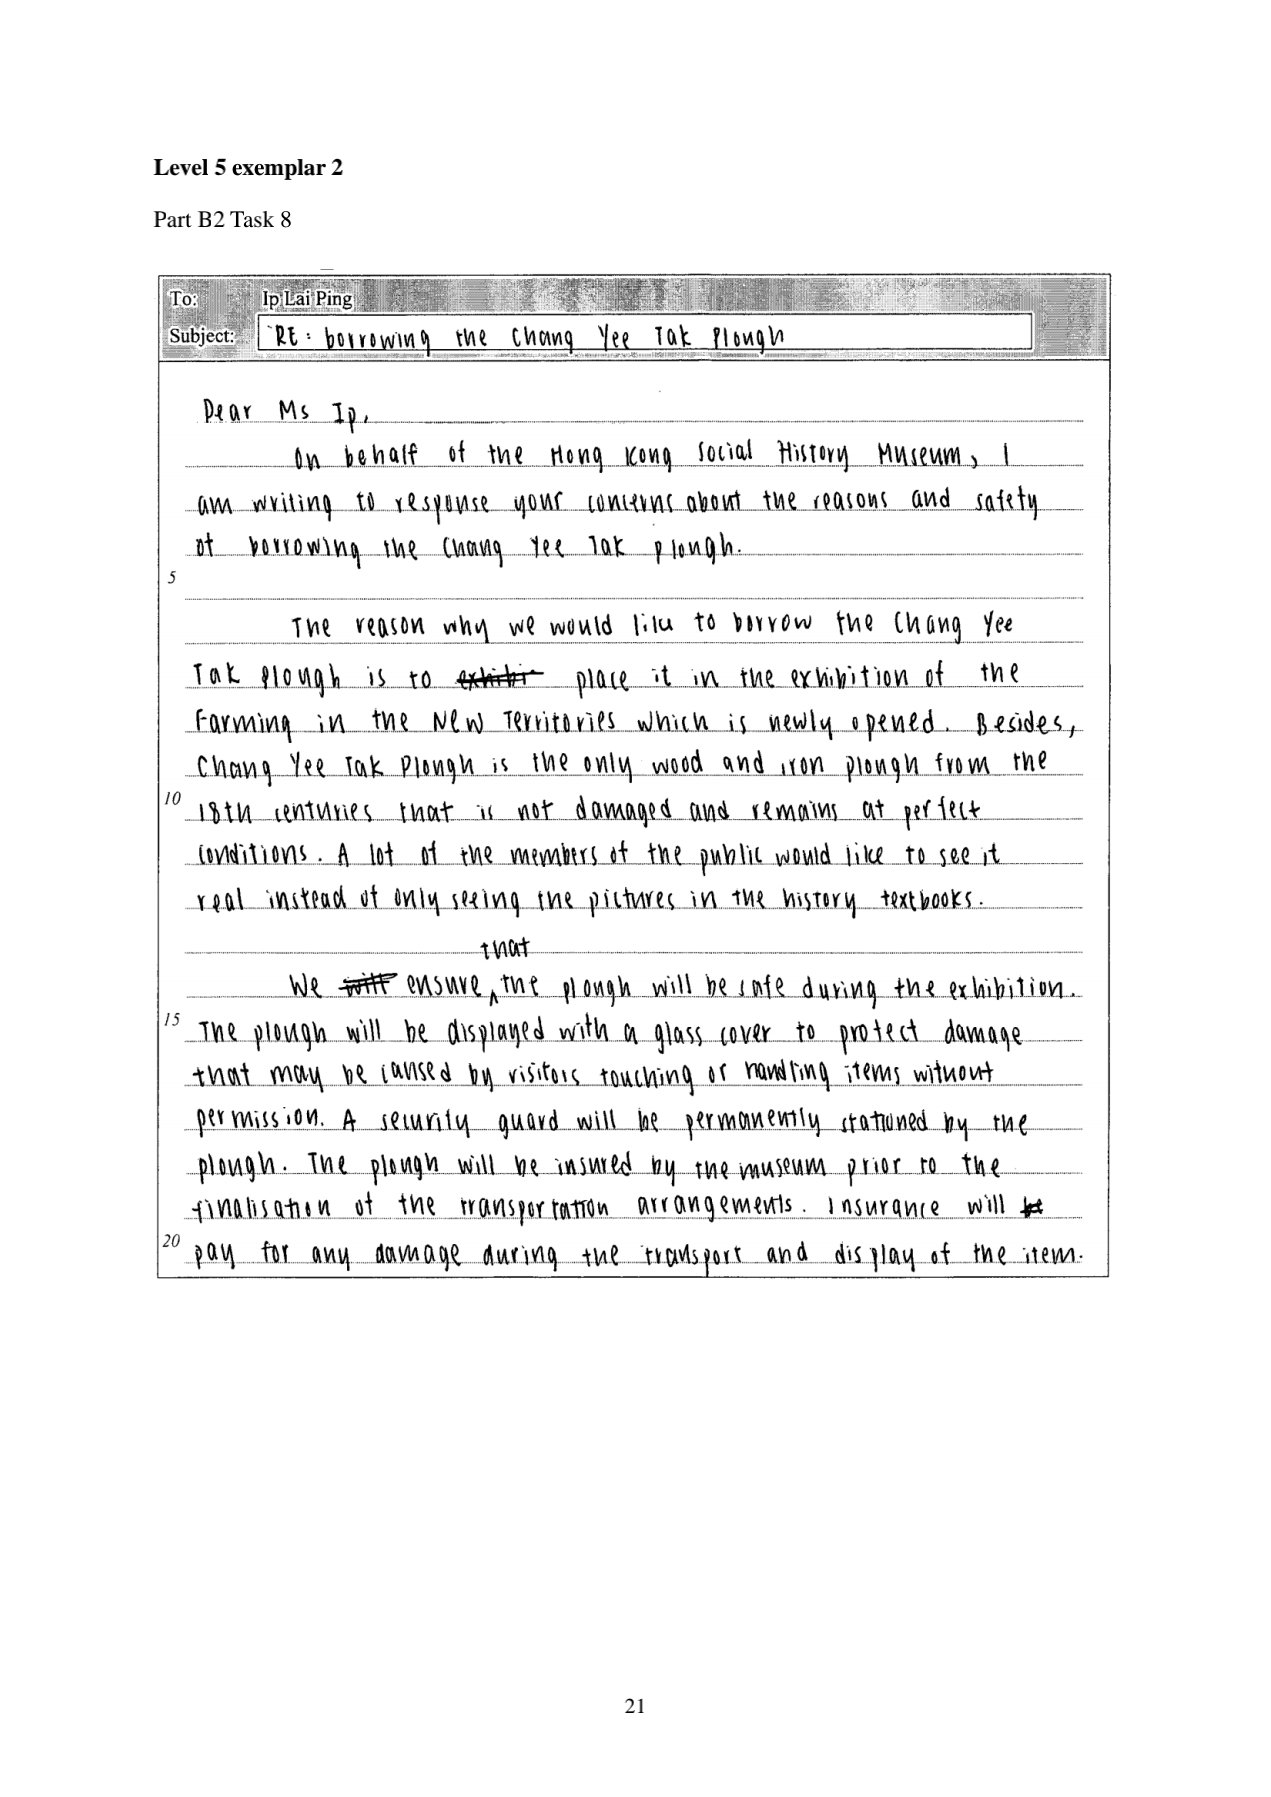 Level 5 exemplar 2
Part B2 Task 8
To: Ip Lai Ping
Subject: RE: borrowing the Chang Yee Tak Plough
Dear Ms Ip,
On behalf of the Hong Kong Social History Museum, I
am writing to response your concerns about the reasons and safety
of borrowing the Chang Yee Tak plough.
5
The reason why we would like to borrow the Chang Yee
Tak Plough is to exhibit place it in the exhibition of the
Farming in the New Territories which is newly opened. Besides,
Chang Yee Tak Plough is the only wood and iron plough from the
10 18th centuries that is not damaged and remains at perfect
conditions. A lot of the members of the public would like to see it
real instead of only seeing the pictures in the history textbooks.
that
We will ensure ^ the plough will be safe during the exhibition.
15 The plough will be displayed with a glass cover to protect damage
that may be caused by visitors touching or handling items without
permission. A security guard will be permanently stationed by the
plough. The plough will be insured by the museum prior to the
finalisation of the transportation arrangements. Insurance will be
20 pay for any damage during the transport and display of the item.
21